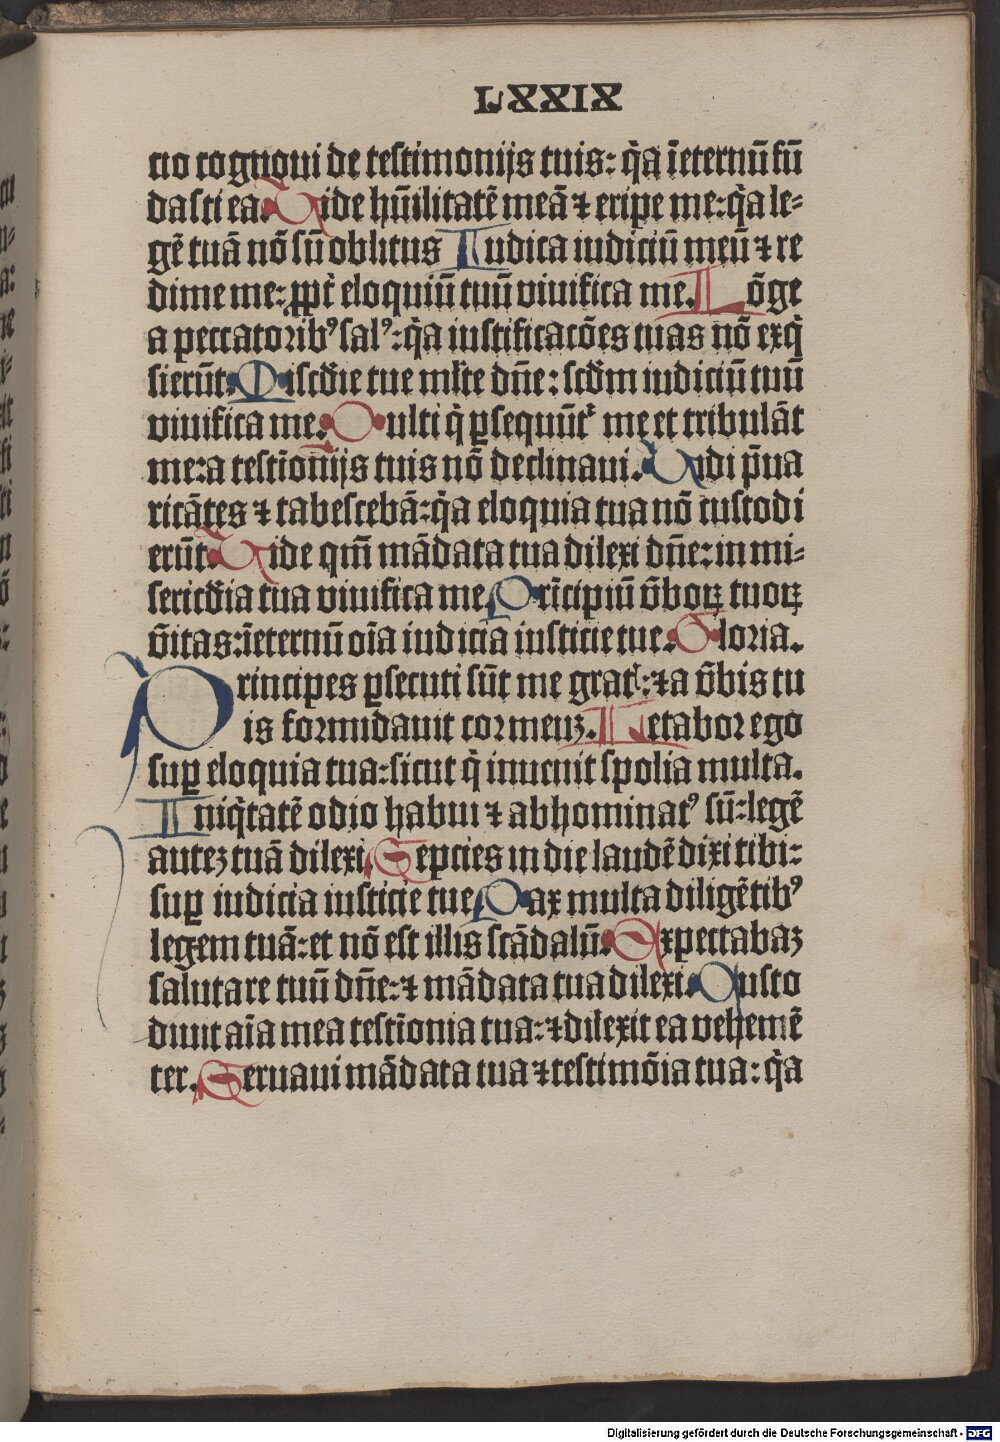 LXXIX
cio cognoui de testimonijs tuis: q̃a ĩeternũ fũ
dasti ea. Uide hũilitatẽ meã ⁊ eripe me: q̃a le⸗
gẽ tuã nõ sũ oblitus Iudica iudiciũ meũ ⁊ re
dime me: ꝓpt̃ eloquiũ tuũ viuifica me. Lõge
a peccatoribꝰ salꝰ: q̃a iustificacões tuas nõ exq̃
sierũt. Miscd̃ie tue ml̃te dñe: scd̃m iudiciũ tuũ
viuifica me. Multi q̃ ꝑsequũt᷑ me et tribulãt
me: a testĩonijs tuis nõ declinaui. Uidi p̃ua
ricãtes ⁊ tabescebã: q̃a eloquia tua nõ custodi
erũt. Uide qm̃ mãdata tua dilexi dñe: in mi⸗
sericd̃ia tua viuifica me. Prĩcipiũ ṽboꝝ tuoꝝ
ṽitas: ĩeternũ oĩa iudicia iusticie tue. Gloria.
Principes ꝑsecuti sũt me grat᷑: ⁊ a ṽbis tu
is formidauit cor meuꝫ. Letabor ego
suꝑ eloquia tua: sicut q̃ inuenit spolia multa.
Iniq̃tatẽ odio habui ⁊ abhominatꝰ sũ: legẽ
auteꝫ tuã dilexi. Sepcies in die laudẽ dixi tibi:
suꝑ iudicia iusticie tue. Pax multa diligẽtibꝰ
legem tuã: et nõ est illis scãdalũ. Expectabaꝫ
salutare tuũ dñe: ⁊ mãdata tua dilexi. Custo
diuit aĩa mea testĩonia tua: ⁊ dilexit ea vehemẽ
ter. Seruaui mãdata tua ⁊ testimõia tua: q̃a
Digitalisierung gefördert durch die Deutsche Forschungsgemeinschaft - DFG